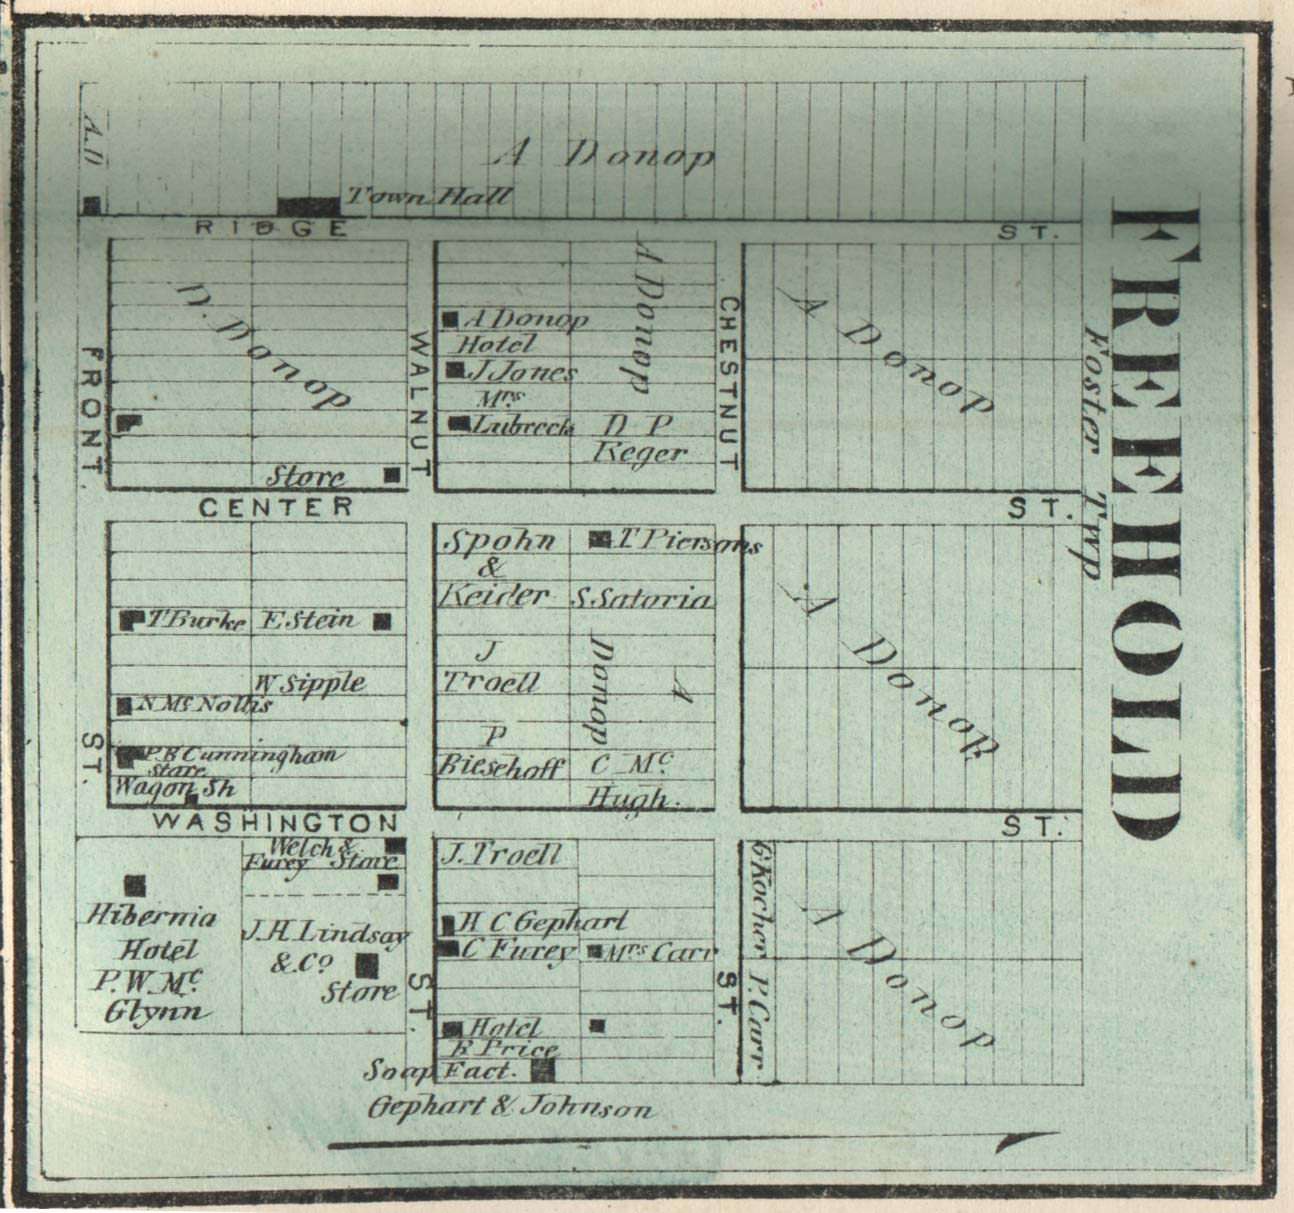 FREEHOLD
Foster Twp
A. D
A Donop
Town Hall
RIDGE ST.
FRONT ST.
WALNUT ST.
CHESTNUT ST.
D. Donop
Store
A Donop
Hotel
J Jones
Mrs
Lubreck
A Donop
D P
Keger
A Donop
CENTER ST.
T Burke
E Stein
W Sipple
N Mc Nollis
P. B Cunningham
store
Wagon Sh
Spohn
&
Keider
T Piersons
S. Satoria
J
Troell
A Donop
P
Bieschoff
C Mc
Hugh.
A Donop
WASHINGTON ST.
Welch &
Furey Store
Hibernia
Hotel
P. W. Mc
Glynn
J. H. Lindsay
& Co
Store
J. Troell
H C Gephart
C Furey
Mrs Carr
Hotel
R Price
Soap Fact.
Gephart & Johnson
G Kocher
P. Carr
A Donop